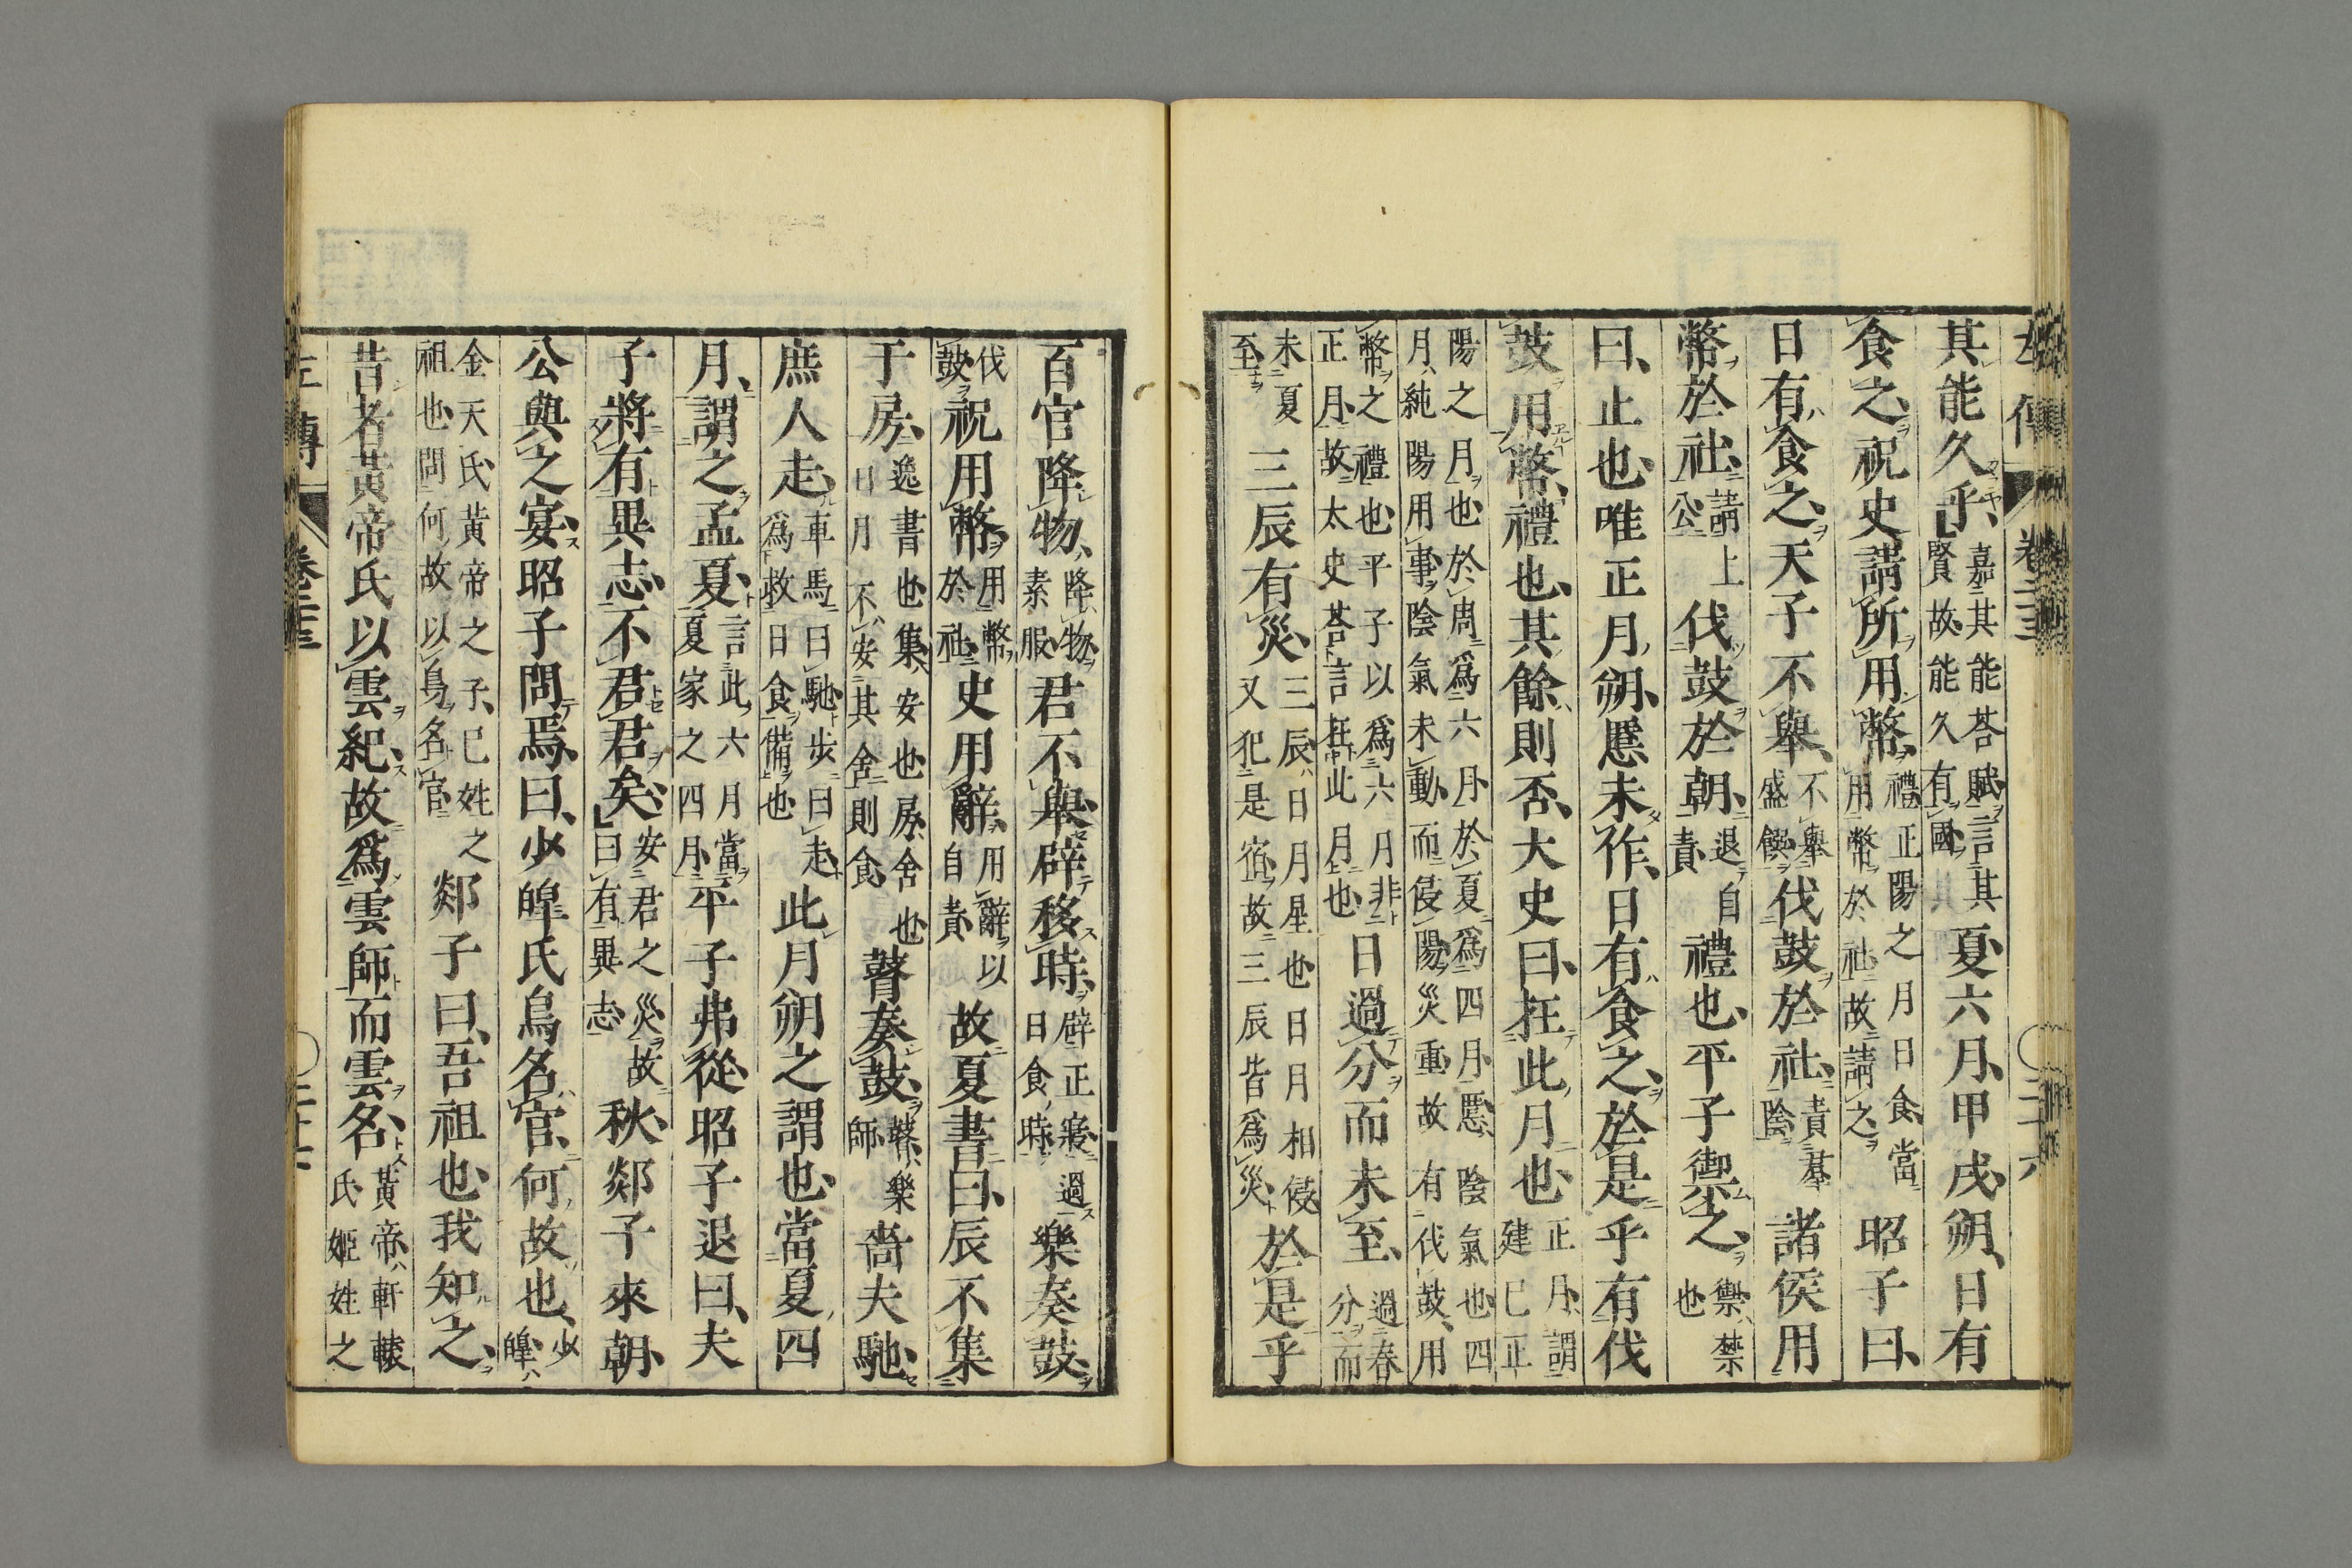 左傳 卷二十三
其能久乎嘉其能荅賦言其賢故能久有國其夏六月甲戌朔日有
食之祝史請所用幣禮正陽之月日食當用幣於社故請之昭子曰
日有食之天子不舉不舉盛饌伐鼓於社責羣陰諸侯用
幣於社請上公伐鼓於朝退自責禮也平子禦之禦禁也
曰止也唯正月朔慝未作日有食之於是乎有伐
鼓用幣禮也其餘則否大史曰在此月也正月謂建巳正
陽之月也於周爲六月於夏爲四月慝陰氣也四月純陽用事陰氣未動而侵陽災重故有伐鼓用
幣之禮也平子以爲六月非正月故太史荅言在此月也日過分而未至過春分而
未夏至三辰有災三辰日月星也日月相侵又犯是宿故三辰皆爲災於是乎
百官降物降物素服君不舉辟移時辟正寢過日食時樂奏鼓
伐鼓祝用幣用幣於社史用辭用辭以自責故夏書曰辰不集
于房逸書也集安也房舍也日月不安其舍則食瞽奏鼓瞽樂師嗇夫馳
庶人走車馬曰馳步曰走爲救日食備也此月朔之謂也當夏四
月謂之孟夏言此六月當夏家之四月平子弗從昭子退曰夫
子將有異志不君君矣安君之災故曰有異志秋郯子來朝
公與之宴昭子問焉曰少皥氏鳥名官何故也少皥
金天氏黃帝之子己姓之祖也問何故以鳥名官郯子曰吾祖也我知之
昔者黃帝氏以雲紀故爲雲師而雲名黃帝軒轅氏姬姓之
左傳 卷二十三